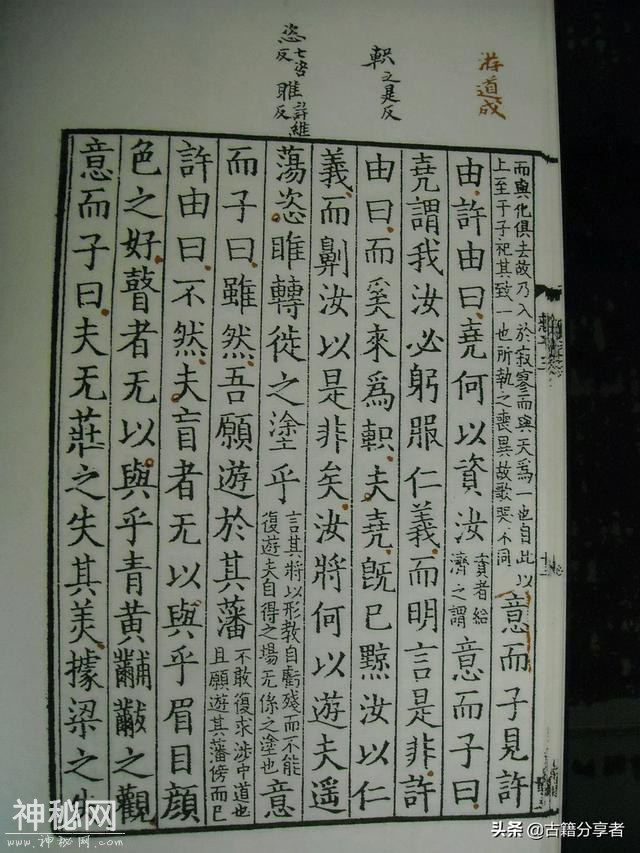 游道成
軹之是反
恣七咨反睢許維反
而與化俱去故乃入於寂寥而與天爲一也自此以
上至于子祀其致一也所執之喪異故歌哭不同
意而子見許
由許由曰堯何以資汝資者給濟之謂意而子曰
堯謂我汝必躬服仁義而明言是非許
由曰而奚來爲軹夫堯既已黥汝以仁
義而劓汝以是非矣汝將何以遊夫遥
蕩恣睢轉徙之塗乎言其將以形教自虧殘而不能復遊夫自得之場无係之塗也意
而子曰雖然吾願遊於其藩不敢復求涉中道也且願遊其藩傍而已
許由曰不然夫盲者无以與乎眉目顏
色之好瞽者无以與乎青黃黼黻之觀
意而子曰夫无莊之失其美據梁之失
神秘网
www.神秘网.com
头条 @古籍分享者